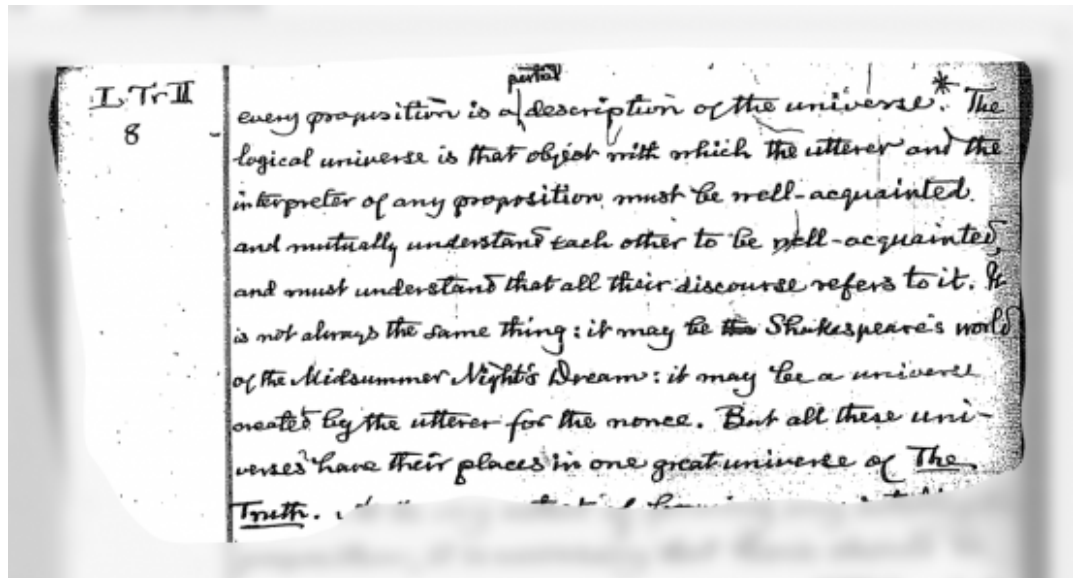 I. Tr II
8
partial
every proposition is a description of the universe.* The
logical universe is that object with which the utterer and the
interpreter of any proposition must be well-acquainted
and mutually understand each other to be well-acquainted,
and must understand that all their discourse refers to it. It
is not always the same thing: it may be the Shakespeare's world
of the Midsummer Night's Dream: it may be a universe
created by the utterer for the nonce. But all these uni-
verses have their places in one great universe of The
Truth.